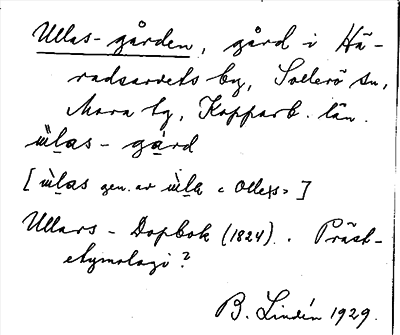 Ullas-gården, gård i Hä-
radsarvets by, Sollerö sn,
Mora tg, Kopparb. län.
ùlas - gård
[ùlas gen. av ùla < Ollers>]
Ullars - Dopbok (1824). Präst-
etymologi?
B. Lindén 1929.